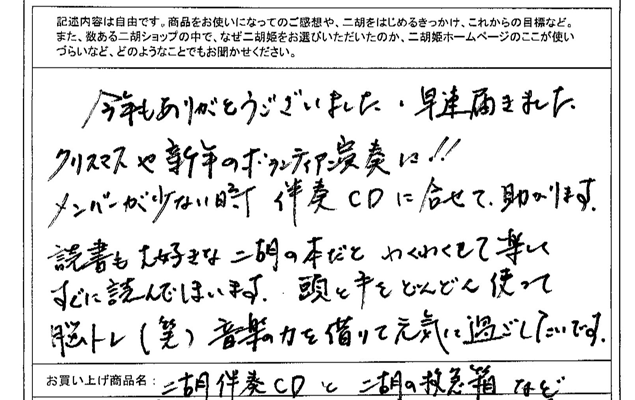 記述内容は自由です。商品をお使いになってのご感想や、二胡をはじめるきっかけ、これからの目標など。
また、数ある二胡ショップの中で、なぜ二胡姫をお選びいただいたのか、二胡姫ホームページのここが使い
づらいなど、どのようなことでもお聞かせください。
今年もありがとうございました。早速届きました。
クリスマスや新年のボランティア演奏に!!
メンバーが少ない時 伴奏CDに合せて、助かります。
読書も大好きな二胡の本だと わくわくして楽しく
すぐに読んでしまいます。頭と手をどんどん使って
脳トレ(笑)音楽の力を借りて元気に過ごしたいです。
お買い上げ商品名: 二胡伴奏CDと 二胡の救急箱 など